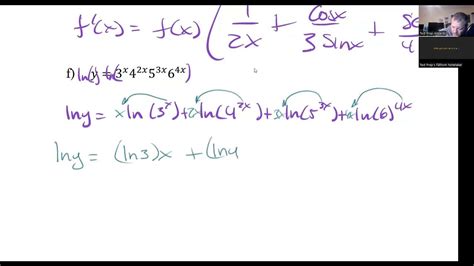 f'(x) = f(x) ( 1/2x + cosx/3sinx + se/4
f) ln(y) = ln(3^x4^{2x}5^{3x}6^{4x})
lny = x ln(3^x) + 2x ln(4^{2x}) + 3x ln(5^{3x}) + 4x ln(6)^{4x}
lny = (ln3)x + (ln4